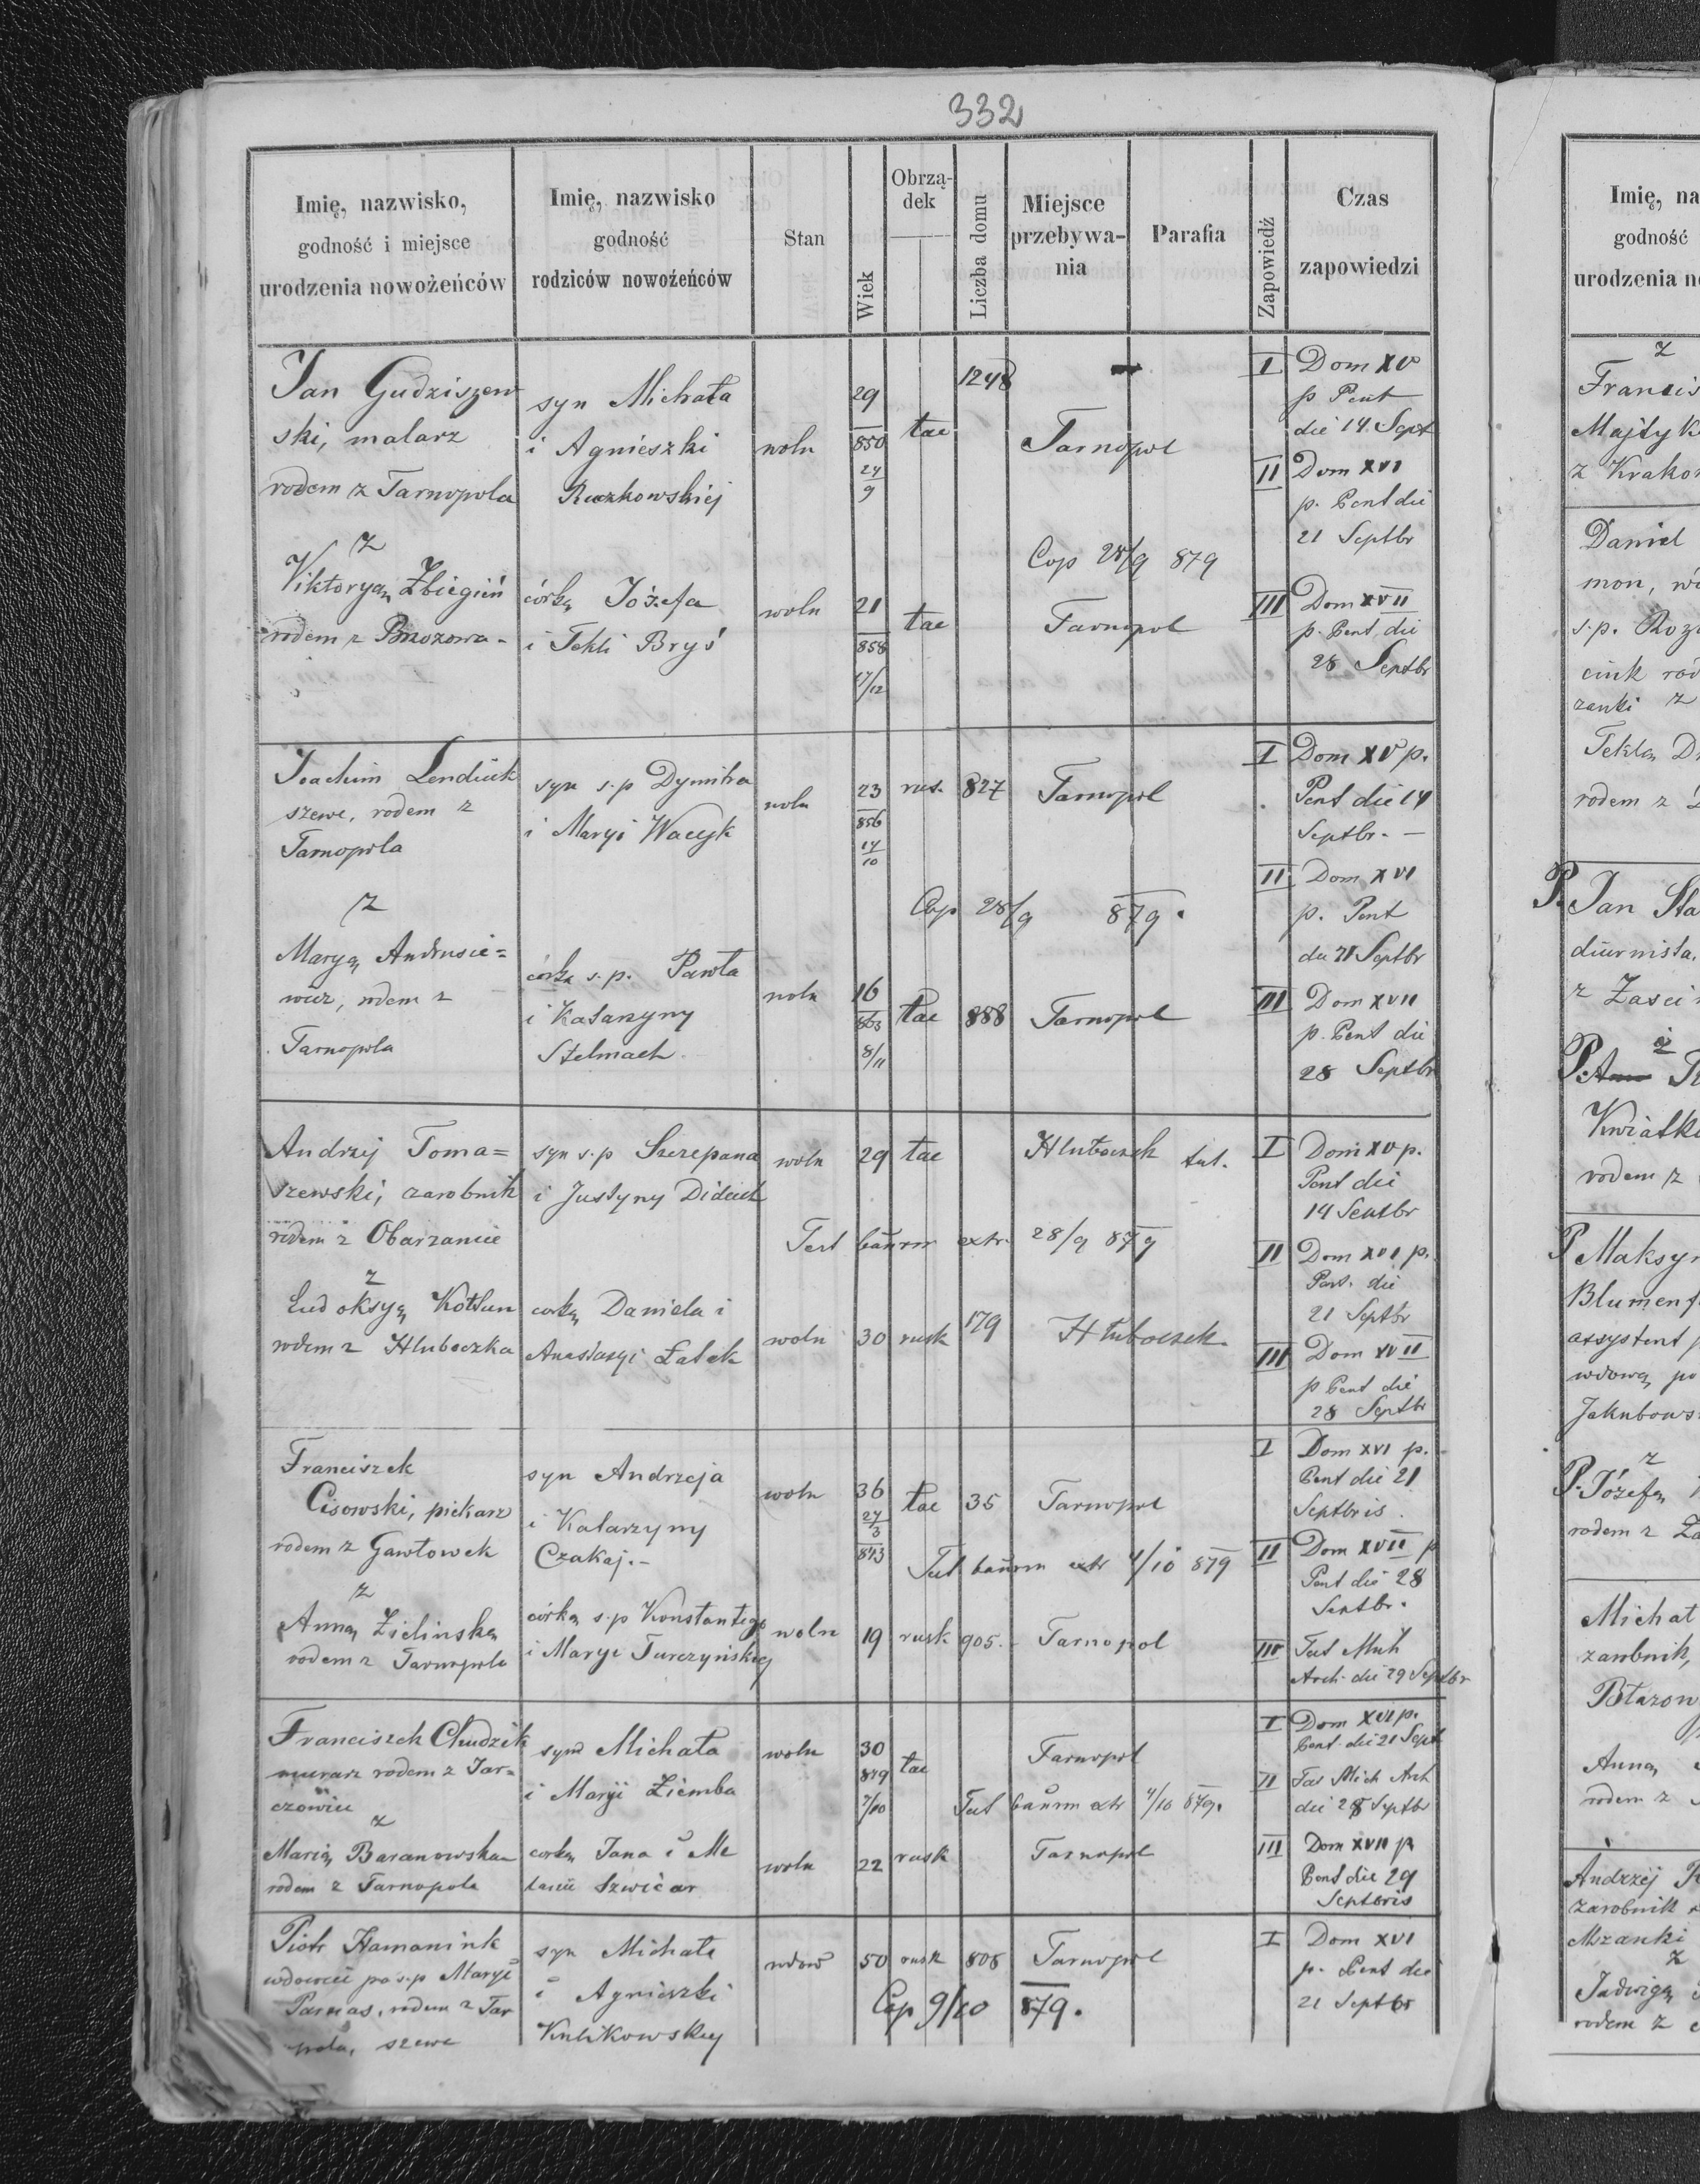 332
Imię, nazwisko,
godność i miejsce
urodzenia nowożeńców
Imię, nazwisko
godność
rodziców nowożeńców
Stan
Wiek
Obrzą-
dek
Liczba domu
Miejsce
przebywa-
nia
Parafia
Zapowiedź
Czas
zapowiedzi
Jan Gudziszew
ski, malarz
rodem z Tarnopola
syn Michała
i Agnieszki
Ruczkowskiej
woln
29
850
24
9
łac
1248
Tarnopol
I Dom XV
p Pent
die 14. Sept
II Dom XVI
p. Pent die
21 Septbr
Cop 28/9 879
z
Viktoryą Zbiegień
rodem z
córką Józefa
i Tekli Bryś
woln
21
858
17/12
łac
Tarnopol
III Dom XVII
p. Pent die
28 Septbr
Joachim Lendiuk
szewc, rodem z
Tarnopola
syn s.p Dymitra
i Maryi Wacyk
woln
23
856
14
10
rus.
827
Tarnopol
I Dom XV p.
Pent die 14
Septbr. —
II Dom XVI
p. Pent
die 21 Septbr
Cop 28/9 879.
z
Maryą Andrusie=
wicz, rodem z
Tarnopola
córka s.p. Pawła
i Katarzyny
Stelmach
woln
16
863
8/11
łac
888
Tarnopol
III Dom XVII
p. Pent die
28 Septbr
Andrzej Toma=
szewski, zarobnik
rodem z Obarzaniec
syn s.p Szczepana
i Justyny Didiuk
woln
29
łac
Hluboczek
tut.
I Dom XV p.
Pent die
14 Septbr
Test bannor extr. 28/9 879
II Dom XVI p.
Pent. die
21 Septbr
z
Eudoksyą Kołtun
rodem z Hluboczka
corką Daniela i
Anastasyi Łatek
woln
30
rusk
179
Hluboczek
III Dom XVII
p Pent die
28 Septbr
Franciszek
Cisowski, piekarz
rodem z Gawłowek
syn Andrzeja
i Katarzyny
Czakaj.-
woln
36
27
3
843
łac
35
Tarnopol
I Dom XVI p.
Pent die 21
Septbris.
Test bannm extr 4/10 879
II Dom XVII p
Pent die 28
Septbr.
z
Anną Zielinską
rodem z Tarnopola
córką s.p Konstantego
i Maryi Turczyńskiej
woln
19
rusk
905.
Tarnopol
III Fest Mich
Arch. die 29 Septbr
Franciszek Chudzik
murarz rodem z Jar=
czowiec
syn Michała
i Maryi Ziemba
woln
30
849
7/10
łac
Tarnopol
I Dom XVI p.
Pent. die 21 Sept
II Fes Mich Arch
die 28 Septbr
Test bannm extr 4/10 879.
z
Marią Baranowską
rodem z Tarnopola
corką Jana i Me
łanii Szwićar
woln
22
rusk
Tarnopol
III Dom XVII p
Pent die 29
Septbris
Piotr Hamanink
wdowiec po s.p Maryi
Parnas, rodem z Tar
pola, szewc
syn Michała
i Agnieszki
Kulikowskiej
wdow
50
rusk
808
Tarnopol
I Dom XVI
p. Pent die
21 Septbr
Cop 9/10 879.
Imię, na
godność
urodzenia no
z
Francis
Majtyk
z Krakow
Daniel
mon,
s.p. Roz
cink rod
zanki z
Teklą
rodem z
P. Jan Sta
diurnista.
z Zasci
z
P.
Kwiatk
rodem z
P Maksy
Blumenf
assystent p
wdową po
Jakubows
z
P. Józefą
rodem z Za
Michał
zarobnik,
Błazow
Anną
rodem z
Andrzej
zarobnik
Mszanki
z
Jadwigą
rodem z